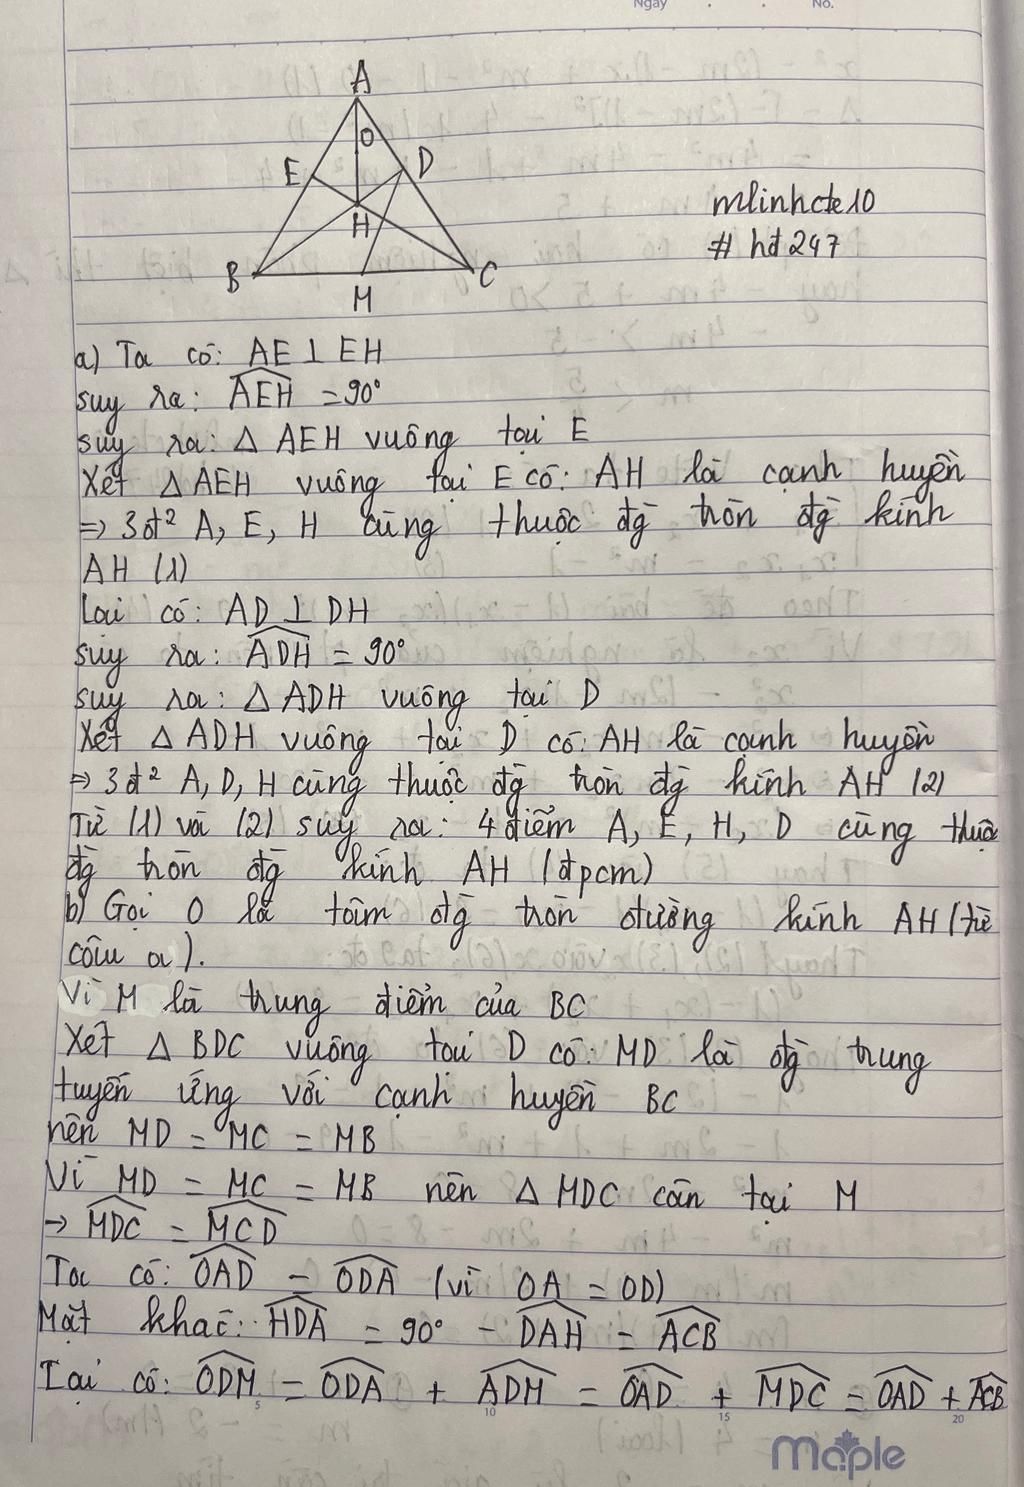 Ngày . . No.
A
O
E D
H
B C
M
mlinhcte10
# hd247
a) Ta có: AE ⊥ EH
suy ra: AEH = 90°
suy ra: Δ AEH vuông tại E
Xét Δ AEH vuông tại E có: AH là cạnh huyền
=> 3đ² A, E, H cùng thuộc đg tròn đg kính
AH (1)
Lại có: AD ⊥ DH
suy ra: ADH = 90°
suy ra: Δ ADH vuông tại D
Xét Δ ADH vuông tại D có: AH là cạnh huyền
=> 3đ² A, D, H cùng thuộc đg tròn đg kính AH (2)
Từ (1) và (2) suy ra: 4 điểm A, E, H, D cùng thuộc
đg tròn đg kính AH (đpcm)
b) Gọi O là tâm đg tròn đường kính AH (từ
câu a).
Vì M là trung điểm của BC
Xét Δ BDC vuông tại D có: MD là đg trung
tuyến ứng với cạnh huyền BC
nên MD = MC = MB
Vì MD = MC = MB nên Δ MDC cân tại M
→ MDC = MCD
Ta có: OAD = ODA (vì OA = OD)
Mặt khác: HDA = 90° - DAH = ACB
Lại có: ODM = ODA + ADM = OAD + MDC = OAD + ACB
5 10 15 20
Maple